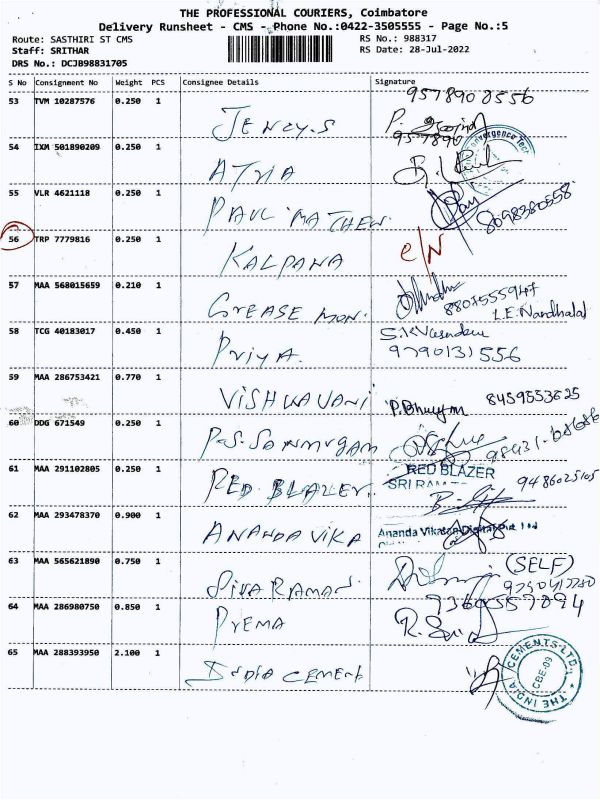 THE PROFESSIONAL COURIERS, Coimbatore
Delivery Runsheet - CMS - Phone No.:0422-3505555 - Page No.:5
Route: SASTHIRI ST CMS
RS No.: 988317
Staff: SRITHAR
RS Date: 28-Jul-2022
DRS No.: DCJB98831705
S No Consignment No Weight PCS Consignee Details Signature
53 TVM 10287576 0.250 1 JENCY.S 9578908556
54 IXM 501890209 0.250 1 ATRIA
55 VLR 4621118 0.250 1 PAUL MATHEW 8098380558
56 TRP 7779816 0.250 1 KALPANA
57 MAA 568015659 0.210 1 GREASE MON. 8807555947
L.E. Nandhalal
58 TCG 40183017 0.450 1 Priya. 9790131556
59 MAA 286753421 0.770 1 VISHWAVANI 8459553625
60 DDG 671549 0.250 1 P.S. SANMUGAM
61 MAA 291102805 0.250 1 RED BLAZER. RED BLAZER
9486025105
62 MAA 293478370 0.900 1 ANANDA VIKA Ananda Vikatan Digital Pvt Ltd
63 MAA 565621890 0.750 1 SIVARAMAN (SELF)
64 MAA 286980750 0.850 1 PREMA
65 MAA 288393950 2.100 1 INDIA CEMENT THE INDIA CEMENTS LTD. CBE-09